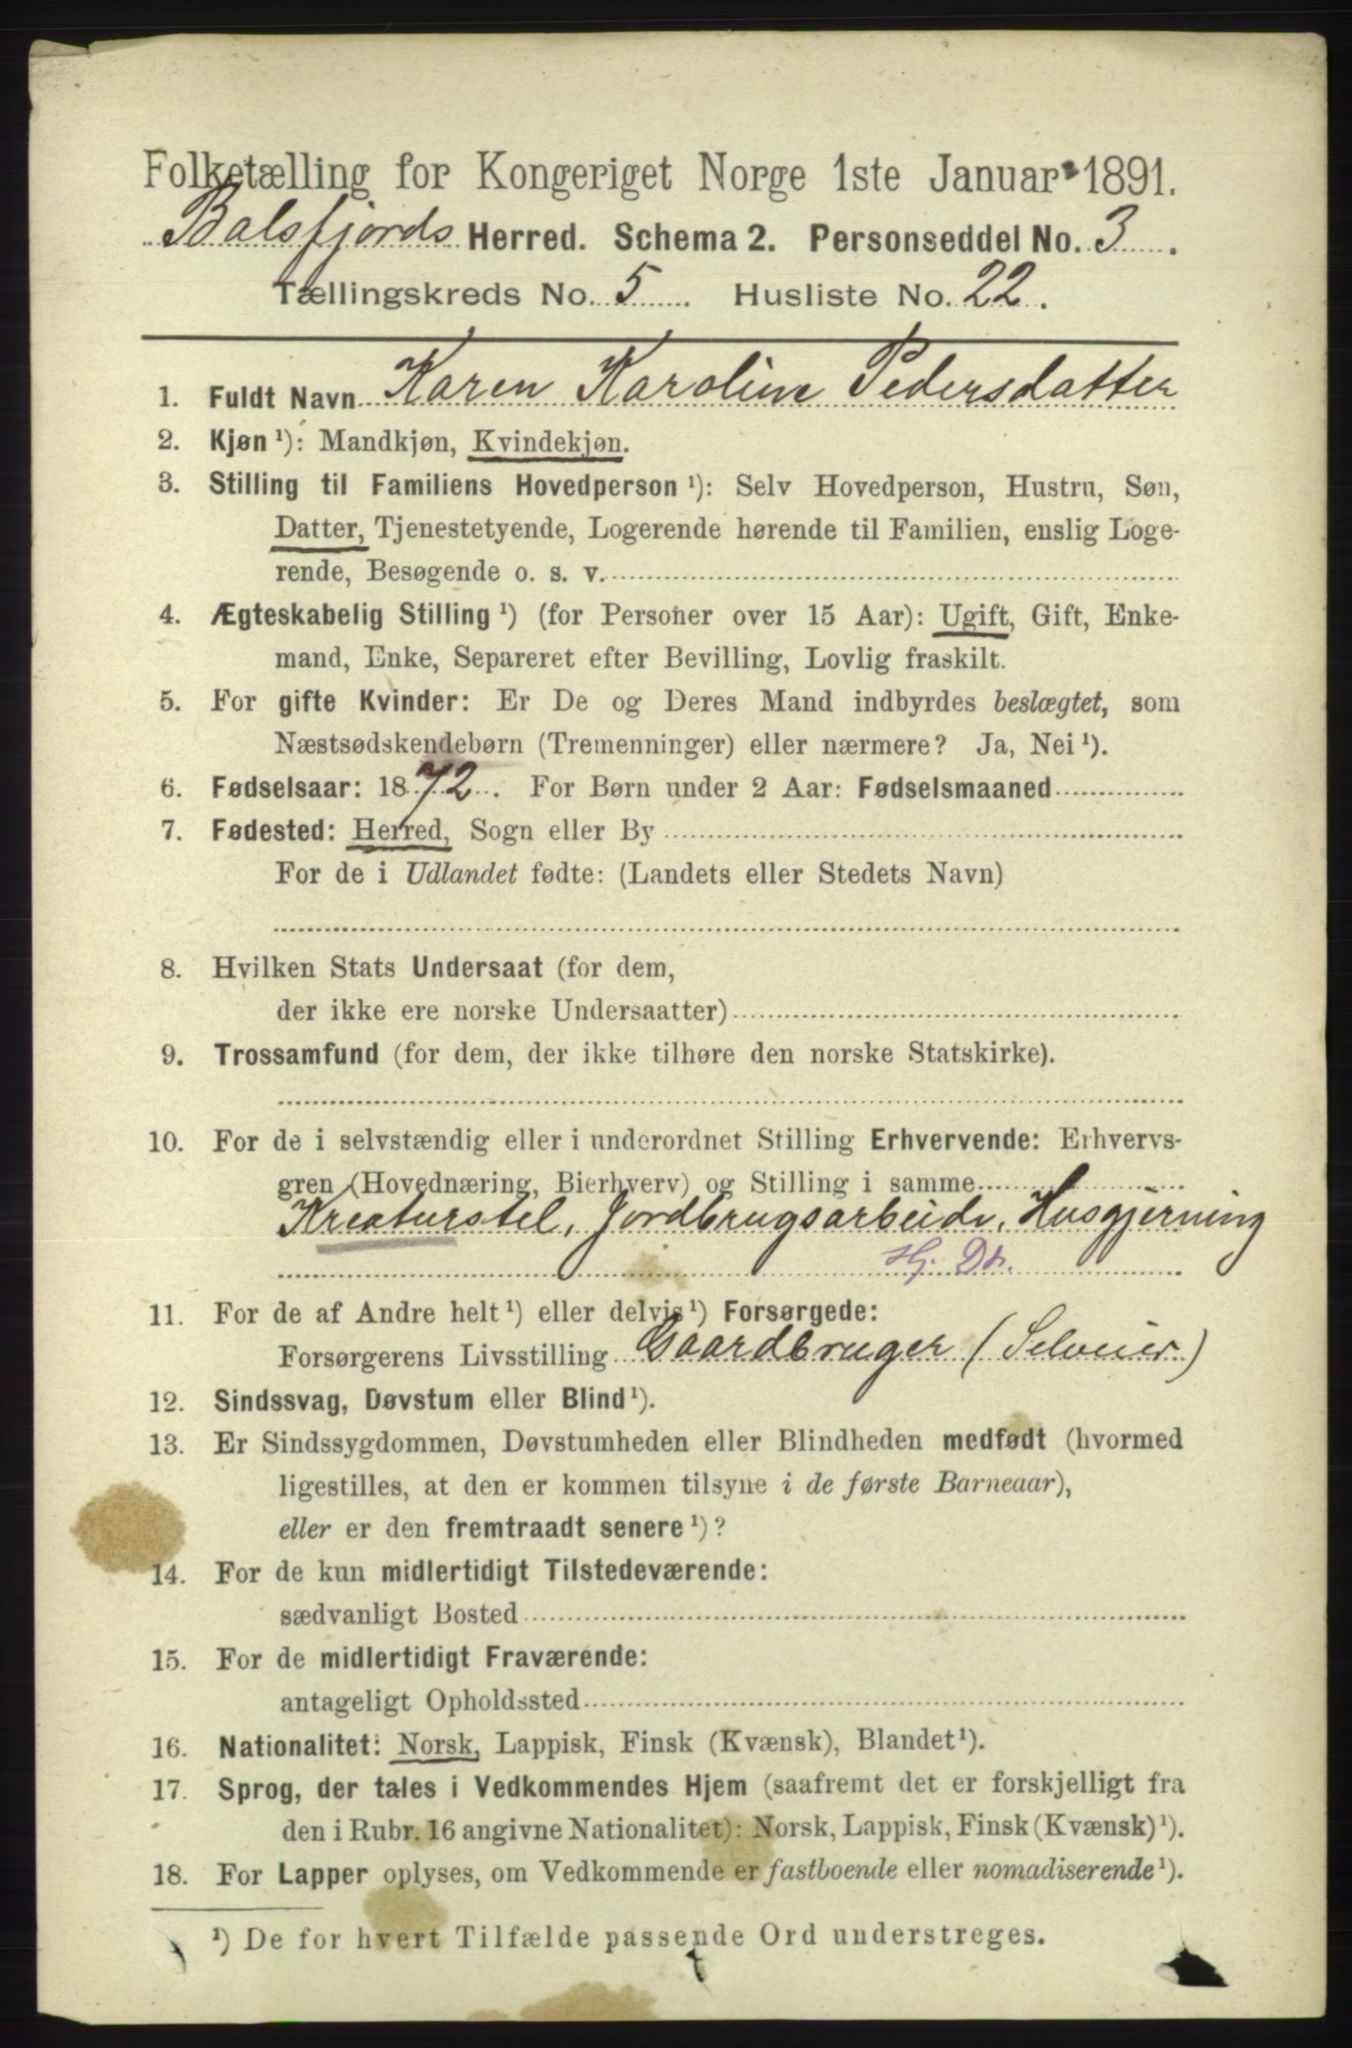 Folketælling for Kongeriget Norge 1ste Januar 1891.
Balsfjords Herred. Schema 2. Personseddel No. 3.
Tællingskreds No. 5. Husliste No. 22.
1. Fuldt Navn Karen Karoline Pedersdatter
2. Kjøn ¹): Mandkjøn, Kvindekjøn.
3. Stilling til Familiens Hovedperson ¹): Selv Hovedperson, Hustru, Søn,
Datter, Tjenestetyende, Logerende hørende til Familien, enslig Loge-
rende, Besøgende o. s. v.
4. Ægteskabelig Stilling ¹) (for Personer over 15 Aar): Ugift, Gift, Enke-
mand, Enke, Separeret efter Bevilling, Lovlig fraskilt.
5. For gifte Kvinder: Er De og Deres Mand indbyrdes beslægtet, som
Næstsødskendebørn (Tremenninger) eller nærmere? Ja, Nei ¹).
6. Fødselsaar: 1872. For Børn under 2 Aar: Fødselsmaaned
7. Fødested: Herred, Sogn eller By
For de i Udlandet fødte: (Landets eller Stedets Navn)
8. Hvilken Stats Undersaat (for dem,
der ikke ere norske Undersaatter)
9. Trossamfund (for dem, der ikke tilhøre den norske Statskirke).
10. For de i selvstændig eller i underordnet Stilling Erhvervende: Erhvervs-
gren (Hovednæring, Bierhverv) og Stilling i samme
Kreaturstel, Jordbrugsarbeide, Husgjerning
Hj. Dt.
11. For de af Andre helt ¹) eller delvis ¹) Forsørgede:
Forsørgerens Livsstilling Gaardbruger (Selveier)
12. Sindssvag, Døvstum eller Blind ¹).
13. Er Sindssygdommen, Døvstumheden eller Blindheden medfødt (hvormed
ligestilles, at den er kommen tilsyne i de første Barneaar),
eller er den fremtraadt senere ¹)?
14. For de kun midlertidigt Tilstedeværende:
sædvanligt Bosted
15. For de midlertidigt Fraværende:
antageligt Opholdssted
16. Nationalitet: Norsk, Lappisk, Finsk (Kvænsk), Blandet ¹).
17. Sprog, der tales i Vedkommendes Hjem (saafremt det er forskjelligt fra
den i Rubr. 16 angivne Nationalitet): Norsk, Lappisk, Finsk (Kvænsk) ¹).
18. For Lapper oplyses, om Vedkommende er fastboende eller nomadiserende ¹).
¹) De for hvert Tilfælde passende Ord understreges.